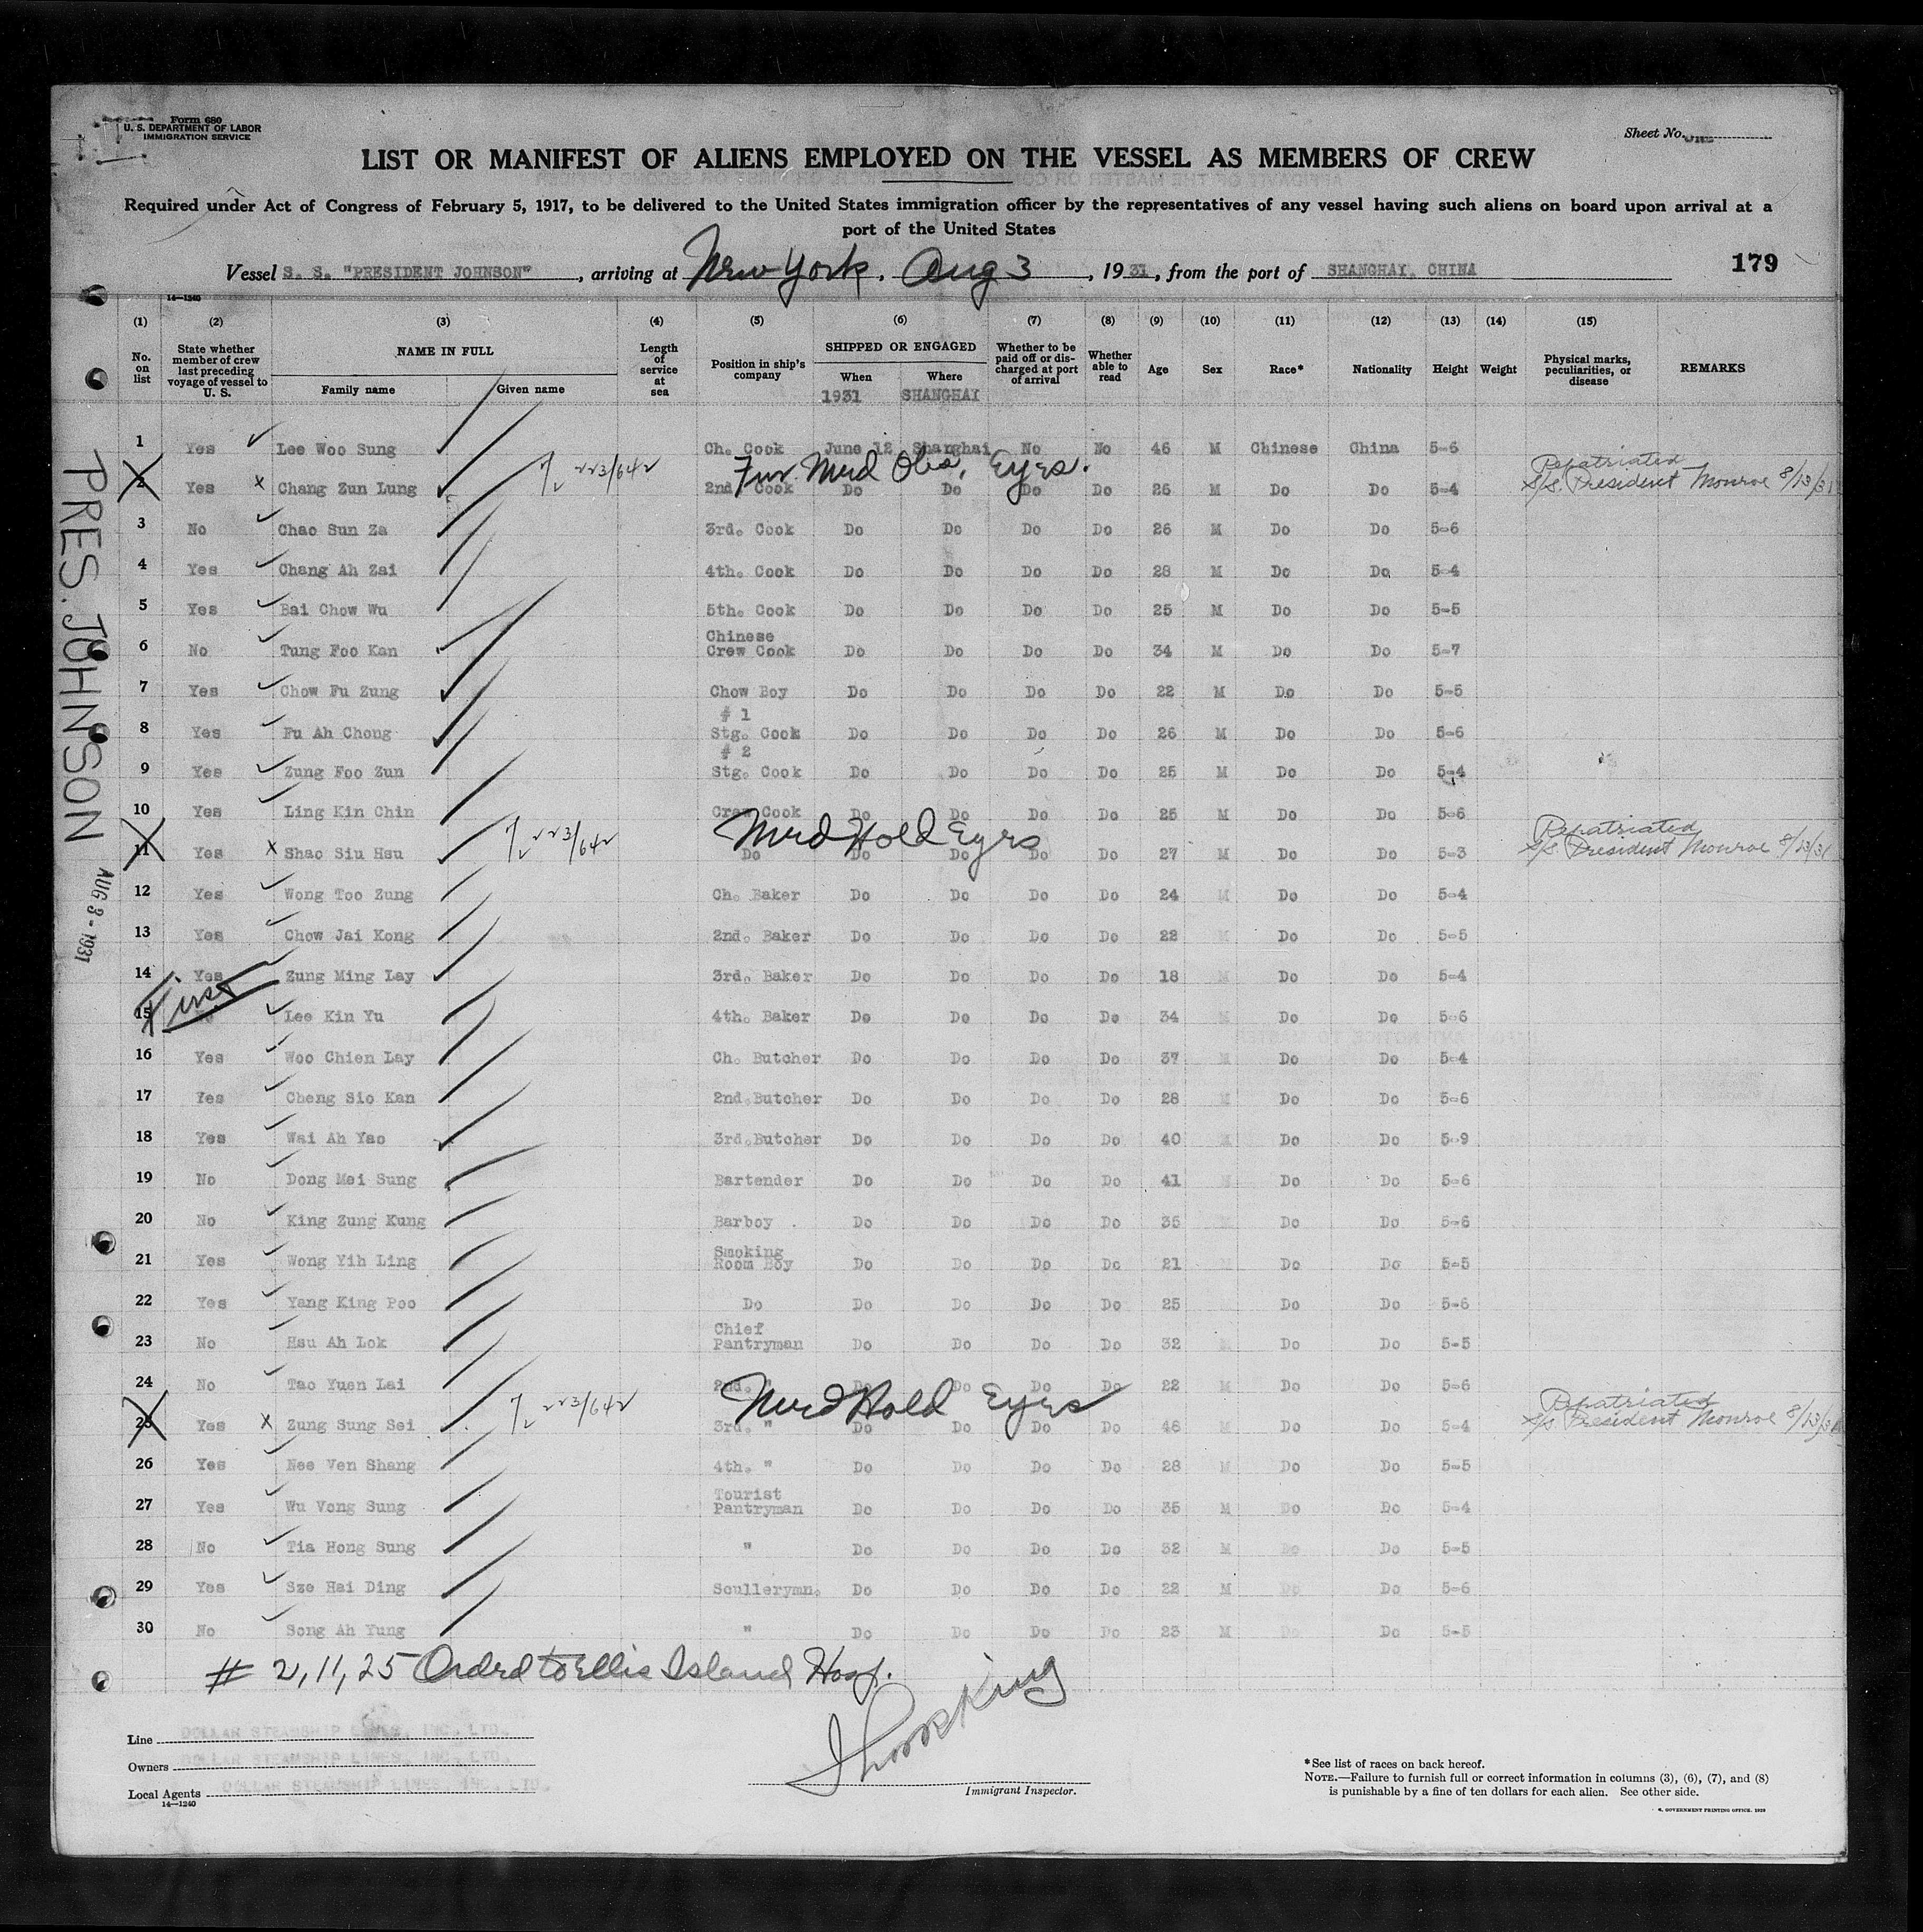 Form 680
U. S. DEPARTMENT OF LABOR
IMMIGRATION SERVICE
Sheet No. ONE
LIST OR MANIFEST OF ALIENS EMPLOYED ON THE VESSEL AS MEMBERS OF CREW
Required under Act of Congress of February 5, 1917, to be delivered to the United States immigration officer by the representatives of any vessel having such aliens on board upon arrival at a
port of the United States
Vessel S. S. "PRESIDENT JOHNSON", arriving at New York, Aug 3, 1931, from the port of SHANGHAI, CHINA
179
14—1240
(1) (2) (3) (4) (5) (6) (7) (8) (9) (10) (11) (12) (13) (14) (15)
No. on list | State whether member of crew last preceding voyage of vessel to U. S. | NAME IN FULL Family name Given name | Length of service at sea | Position in ship's company | SHIPPED OR ENGAGED When Where | Whether to be paid off or discharged at port of arrival | Whether able to read | Age | Sex | Race* | Nationality | Height | Weight | Physical marks, peculiarities, or disease | REMARKS
1931 SHANGHAI
1 Yes Lee Woo Sung Ch. Cook June 12 Shanghai No No 46 M Chinese China 5-6
Eyes. Repatriated
2 Yes x Chang Zun Lung 223/642 2nd Cook Do Do Do Do 26 M Do Do 5-4 S/S. President Monroe 8/13/31
3 No Chao Sun Za 3rd. Cook Do Do Do Do 26 M Do Do 5-6
4 Yes Chang Ah Zai 4th. Cook Do Do Do Do 28 M Do Do 5-4
5 Yes Bai Chow Wu 5th. Cook Do Do Do Do 25 M Do Do 5-5
6 No Tung Foo Kan Chinese Crew Cook Do Do Do Do 34 M Do Do 5-7
7 Yes Chow Fu Zung Chow Boy Do Do Do Do 22 M Do Do 5-5
8 Yes Fu Ah Chong # 1 Stg. Cook Do Do Do Do 26 M Do Do 5-6
9 Yes Zung Foo Zun # 2 Stg. Cook Do Do Do Do 25 M Do Do 5-4
10 Yes Ling Kin Chin Crew Cook Do Do Do Do 25 M Do Do 5-6
Med Hold Eyes Repatriated
11 Yes x Shao Siu Hsu 223/642 Do Do Do Do Do 27 M Do Do 5-3 S/S. President Monroe 8/13/31
12 Yes Wong Too Zung Ch. Baker Do Do Do Do 24 M Do Do 5-4
13 Yes Chow Jai Kong 2nd. Baker Do Do Do Do 22 M Do Do 5-5
14 Yes Zung Ming Lay 3rd. Baker Do Do Do Do 18 M Do Do 5-4
First
15 Lee Kin Yu 4th. Baker Do Do Do Do 34 M Do Do 5-6
16 Yes Woo Chien Lay Ch. Butcher Do Do Do Do 37 M Do Do 5-4
17 Yes Cheng Sio Kan 2nd. Butcher Do Do Do Do 28 M Do Do 5-6
18 Yes Wai Ah Yao 3rd. Butcher Do Do Do Do 40 M Do Do 5-9
19 No Dong Mei Sung Bartender Do Do Do Do 41 M Do Do 5-6
20 No King Zung Kung Barboy Do Do Do Do 35 M Do Do 5-6
21 Yes Wong Yih Ling Smoking Room Boy Do Do Do Do 21 Do Do 5-5
22 Yes Yang King Poo Do Do Do Do Do 25 Do Do 5-6
23 No Hsu Ah Lok Chief Pantryman Do Do Do Do 32 M Do Do 5-5
24 No Tao Yuen Lai 2nd. " Do Do Do Do 22 M Do Do 5-6
Med Hold Eyes Repatriated
25 Yes x Zung Sung Sei 223/642 3rd. " Do Do Do Do 48 M Do Do 5-4 S/S. President Monroe 8/13/31
26 Yes Nee Ven Shang 4th. " Do Do Do Do 28 M Do Do 5-5
27 Yes Wu Vong Sung Tourist Pantryman Do Do Do Do 35 M Do Do 5-4
28 No Tia Hong Sung " Do Do Do Do 32 M Do Do 5-5
29 Yes Sze Hai Ding Scullerymn. Do Do Do Do 22 M Do Do 5-6
30 No Song Ah Yung " Do Do Do Do 23 M Do Do 5-5
PRES. JOHNSON
AUG 3 - 1931
# 2, 11, 25 Ordrd to Ellis Island Hosp.
Line DOLLAR STEAMSHIP LINES, INC., LTD.
Owners DOLLAR STEAMSHIP LINES, INC., LTD.
Local Agents DOLLAR STEAMSHIP LINES, INC. LTD.
14—1240
Immigrant Inspector.
*See list of races on back hereof.
NOTE.—Failure to furnish full or correct information in columns (3), (6), (7), and (8)
is punishable by a fine of ten dollars for each alien. See other side.